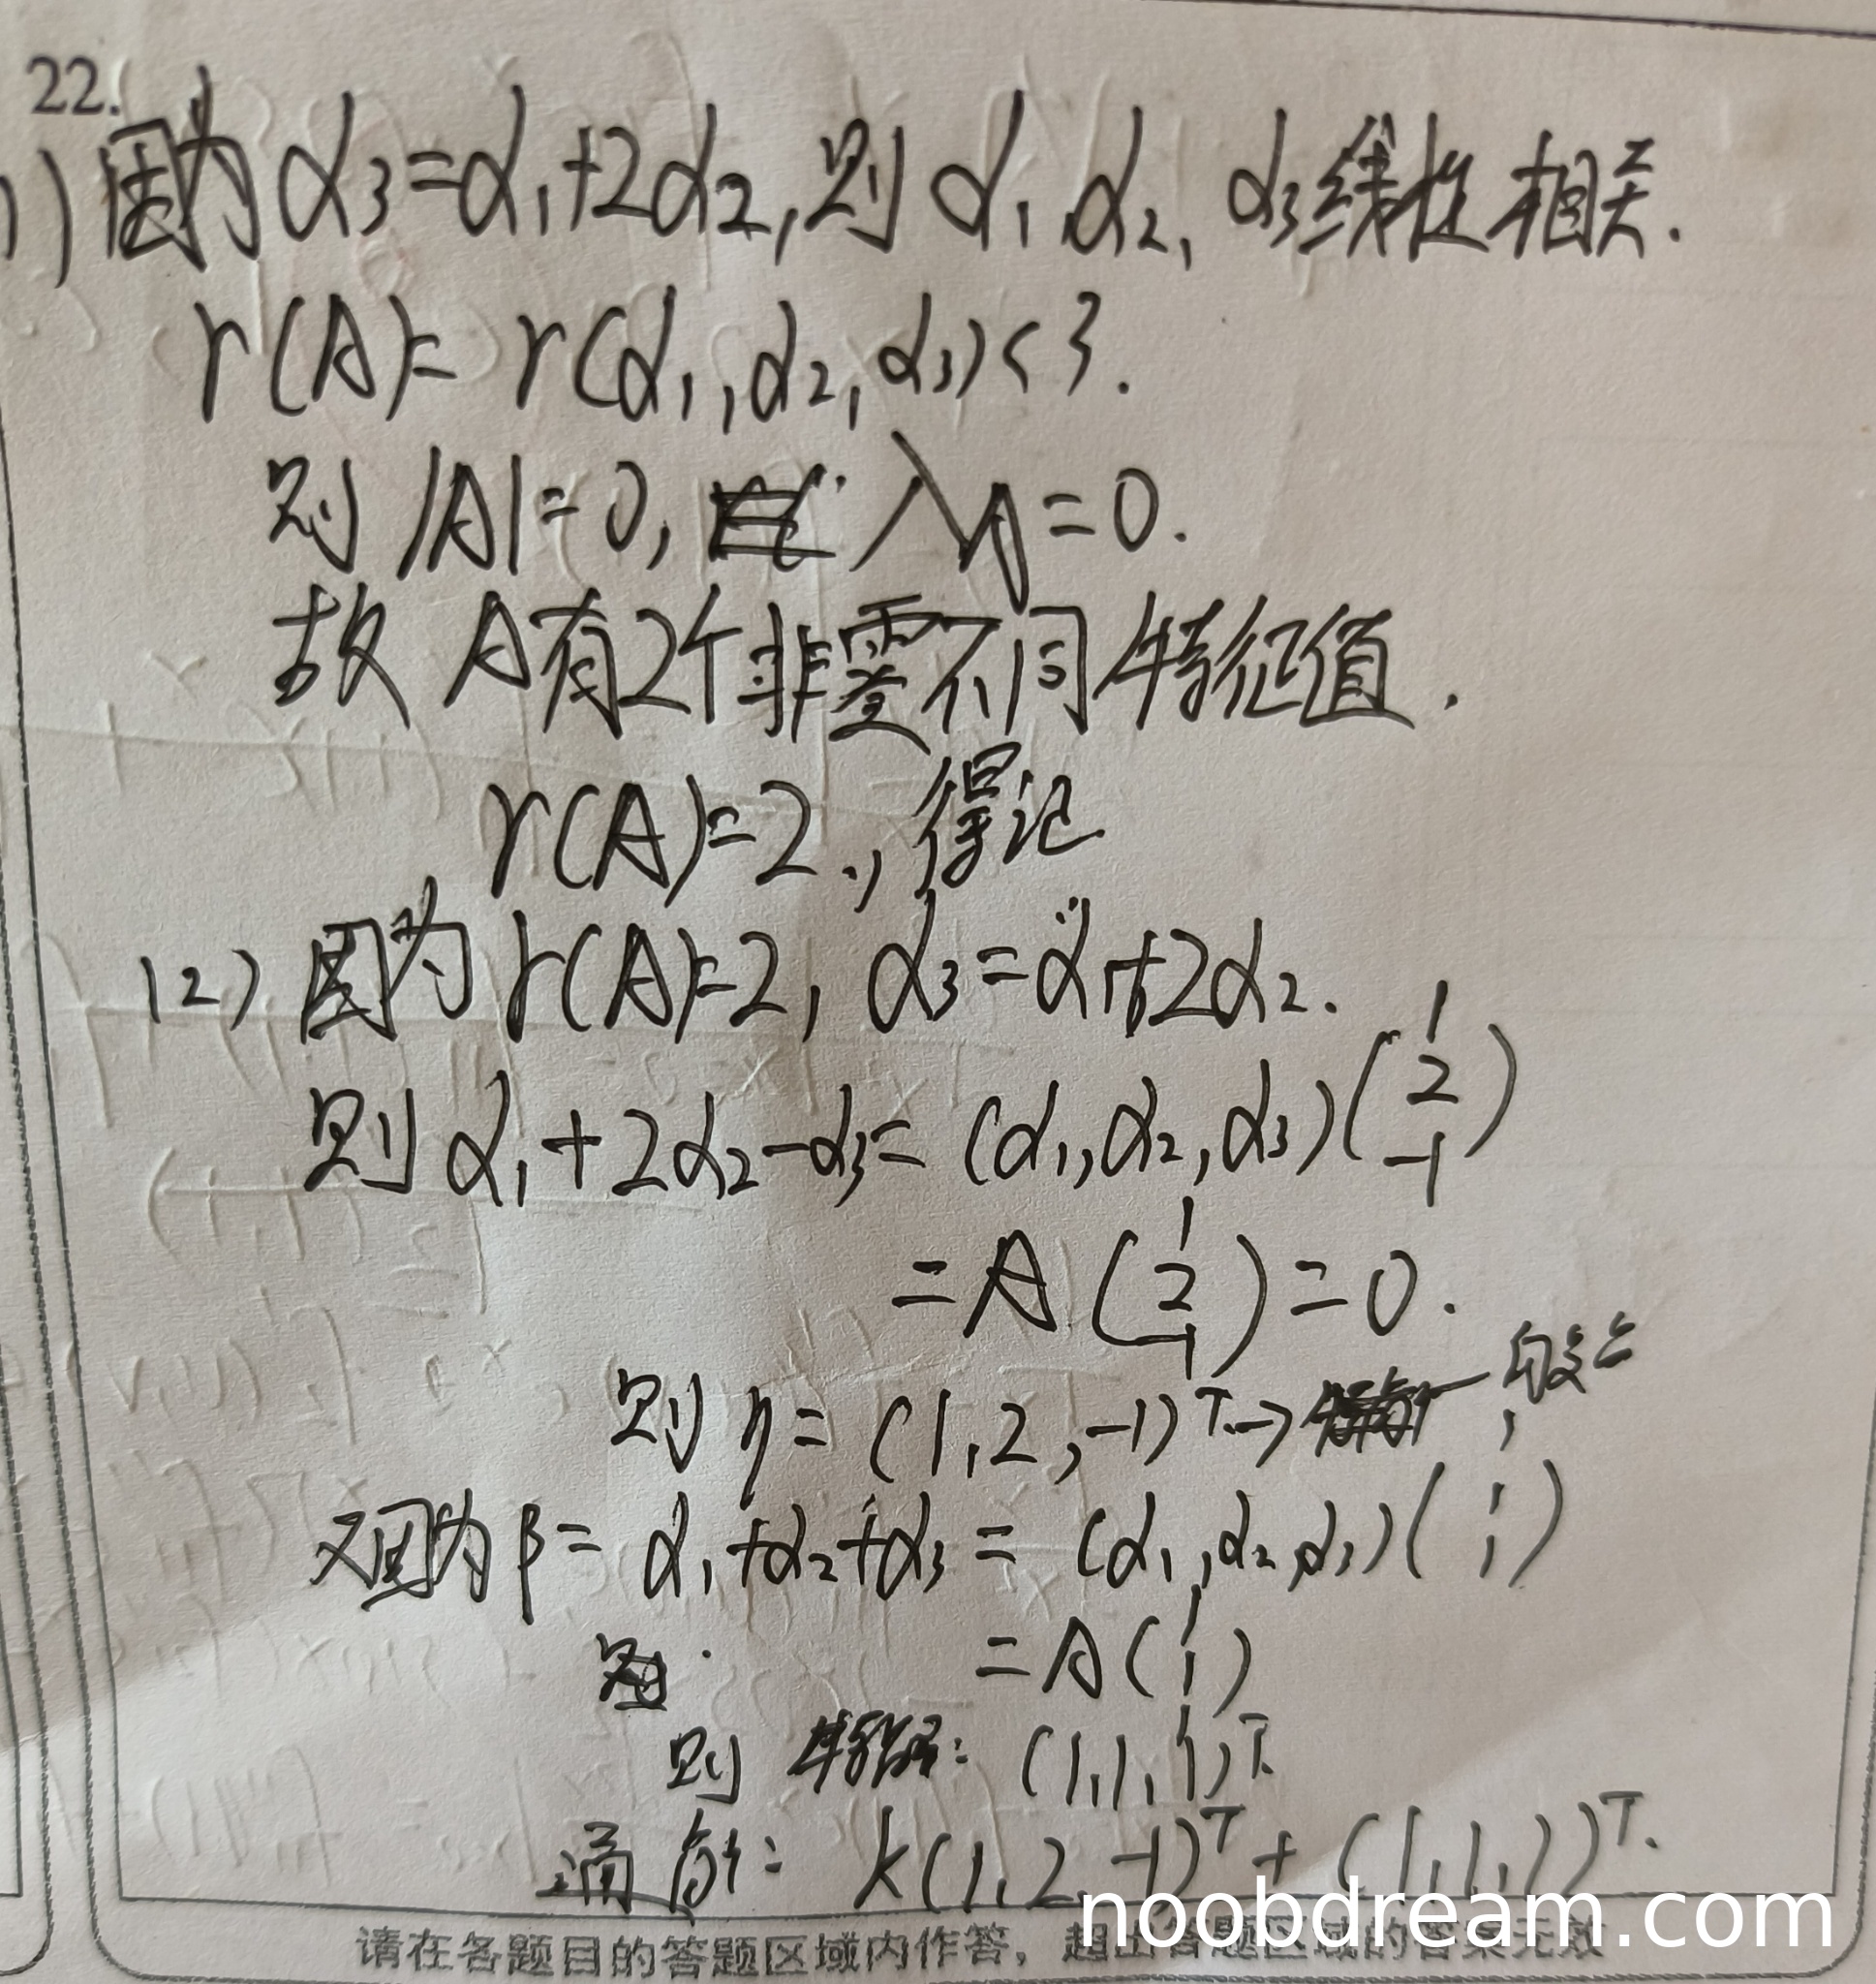 22.
1) 因为 α₃=α₁+2α₂, 则 α₁,α₂,α₃线性相关.
r(A)=r(α₁,α₂,α₃)<3.
则 |A|=0, λ =0.
故 A有2个非零不同特征值.
r(A)=2., 得记
(2) 因为 r(A)=2, α₃=α₁+2α₂.
则 α₁+2α₂-α₃=(α₁,α₂,α₃)(1 2 -1)
=A(1 2 -1)=0.
则 η=(1,2,-1)ᵀ→
又因为 β=α₁+α₂+α₃=(α₁,α₂,α₃)(1 1 1)
=A(1 1 1)
则 特解: (1,1,1)ᵀ.
通解: k(1,2,-1)ᵀ+(1,1,1)ᵀ.
noobdream.com
请在各题目的答题区域内作答，超出答题区域的答案无效